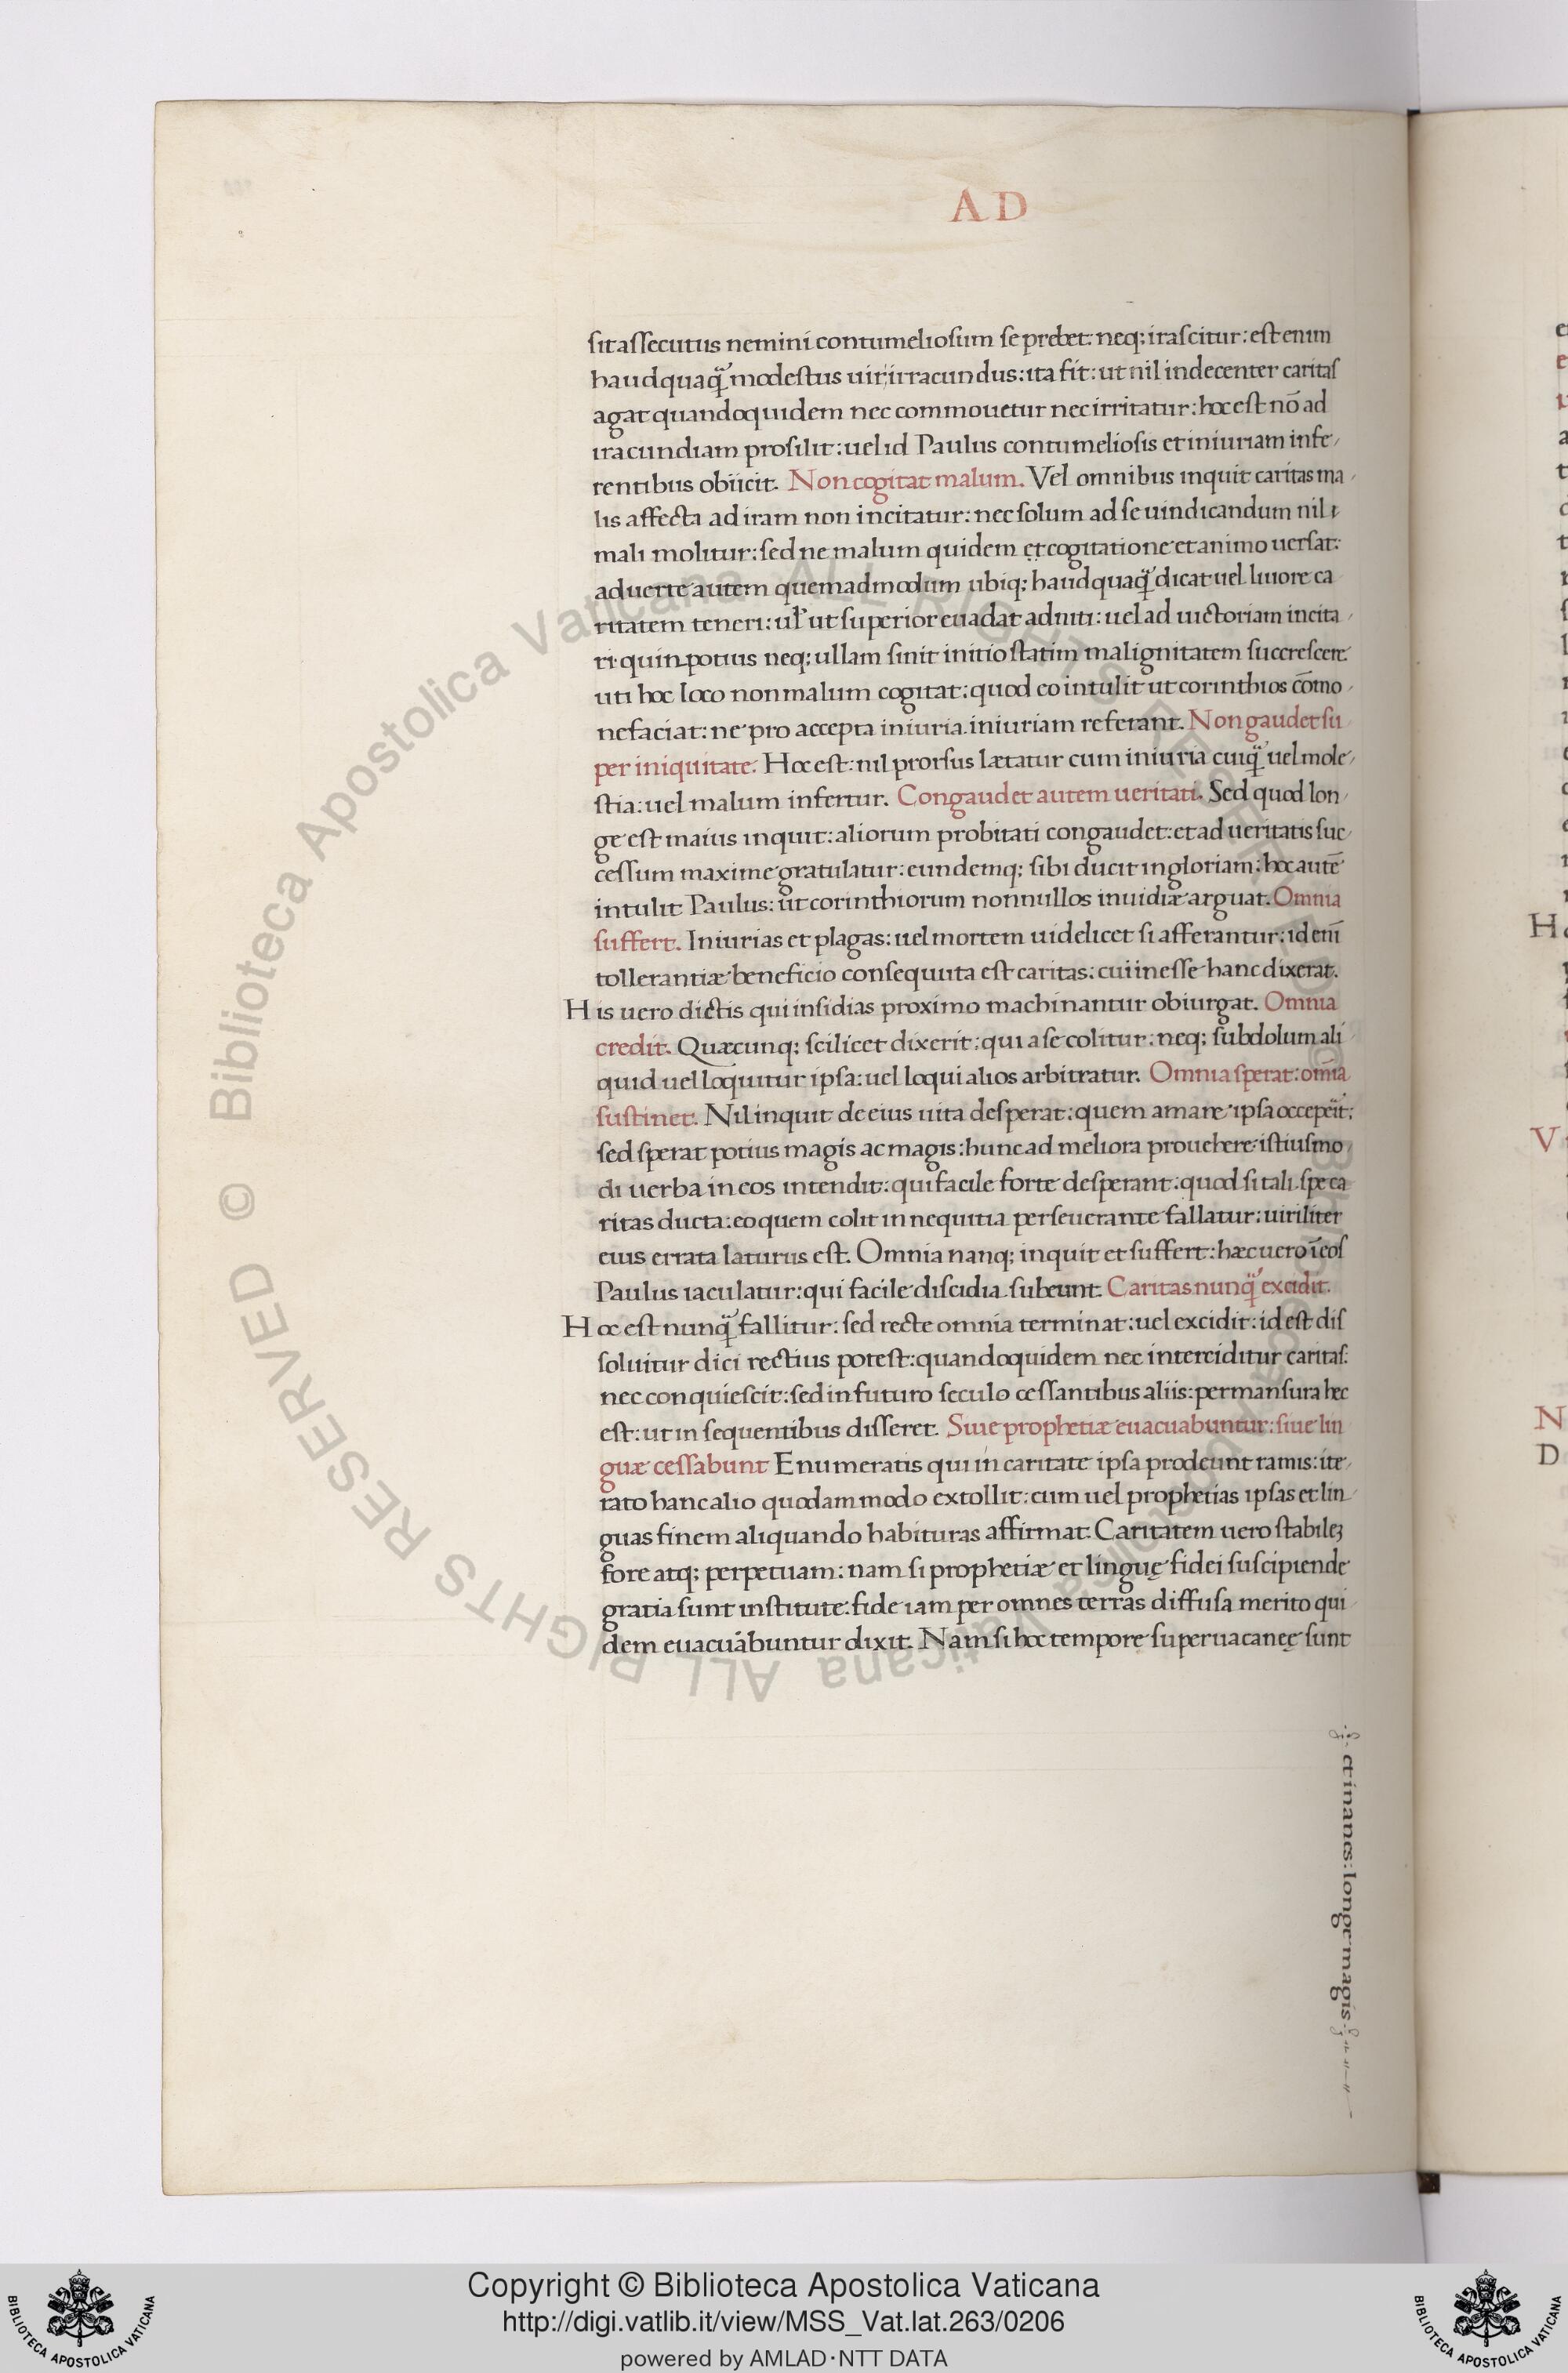 AD
sit assecutus nemini contumeliosum se prebet: neq; irascitur: est enim
haudquaq̃ modestus uir irracundus: ita fit: ut nil indecenter caritas
agat quandoquidem nec commouetur nec irritatur: hoc est nō ad
iracundiam prosilit: uel id Paulus contumeliosis et iniuriam infe
rentibus obiicit. Non cogitat malum. Vel omnibus inquit caritas ma
lis affecta ad iram non incitatur: nec solum ad se uindicandum nil
mali molitur: sed ne malum quidem et cogitatione et animo uersat:
aduerte autem quemadmodum ubiq; haudquaq̃ dicat uel liuore ca
ritatem teneri: ul' ut superior euadat adniti: uel ad uictoriam incita
ri quin potius neq; ullam sinit initio statim malignitatem succrescere
uti hoc loco non malum cogitat: quod eo intulit ut corinthios cōmo
nefaciat: ne pro accepta iniuria iniuriam referant. Non gaudet su
per iniquitate. Hoc est: nil prorsus lætatur cum iniuria cuiq̃ uel mole
stia: uel malum infertur. Congaudet autem ueritati. Sed quod lon
ge est maius inquit: aliorum probitati congaudet: et ad ueritatis suc
cessum maxime gratulatur: eundemq; sibi ducit in gloriam: hoc autē
intulit Paulus: ut corinthiorum nonnullos inuidiæ arguat. Omnia
suffert. Iniurias et plagas: uel mortem uidelicet si afferantur: id enī
tollerantiæ beneficio consequuta est caritas: cui inesse hanc dixerat.
His uero dictis qui insidias proximo machinantur obiurgat. Omnia
credit. Quæcunq; scilicet dixerit: qui a se colitur: neq; subdolum ali
quid uel loquitur ipsa: uel loqui alios arbitratur. Omnia sperat: omīa
sustinet. Nil inquit de eius uita desperat: quem amare ipsa occeperit:
sed sperat potius magis ac magis: hunc ad meliora prouehere istiusmo
di uerba in eos intendit: qui facile forte desperant: quod si tali spe ca
ritas ducta: eo quem colit in nequitia perseuerante fallatur: uiriliter
eius errata laturus est. Omnia nanq; inquit et suffert: hæc uero ī eos
Paulus iaculatur: qui facile discidia subeunt. Caritas nunq̃ excidit.
Hoc est nunq̃ fallitur: sed recte omnia terminat: uel excidit: id est dis
soluitur dici rectius potest: quandoquidem nec interciditur caritas:
nec conquiescit: sed in futuro seculo cessantibus aliis: permansura hec
est: ut in sequentibus disseret. Siue prophetiæ euacuabuntur: siue lin
guæ cessabunt Enumeratis qui in caritate ipsa prodeunt ramis: ite
rato hanc alio quodammodo extollit: cum uel prophetias ipsas et lin
guas finem aliquando habituras affirmat. Caritatem uero stabileȝ
fore atq; perpetuam: nam si prophetiæ et linguę fidei suscipiende
gratia sunt institute: fide iam per omnes terras diffusa merito qui
dem euacuabuntur dixit. Nam si hoc tempore superuacaneę sunt
et inanes: longe magis
© Biblioteca Apostolica Vaticana ALL RIGHTS RESERVED © Biblioteca Apostolica Vaticana ALL RIGHTS RESERVED
Copyright © Biblioteca Apostolica Vaticana
http://digi.vatlib.it/view/MSS_Vat.lat.263/0206
powered by AMLAD·NTT DATA
BIBLIOTECA APOSTOLICA VATICANA
BIBLIOTECA APOSTOLICA VATICANA